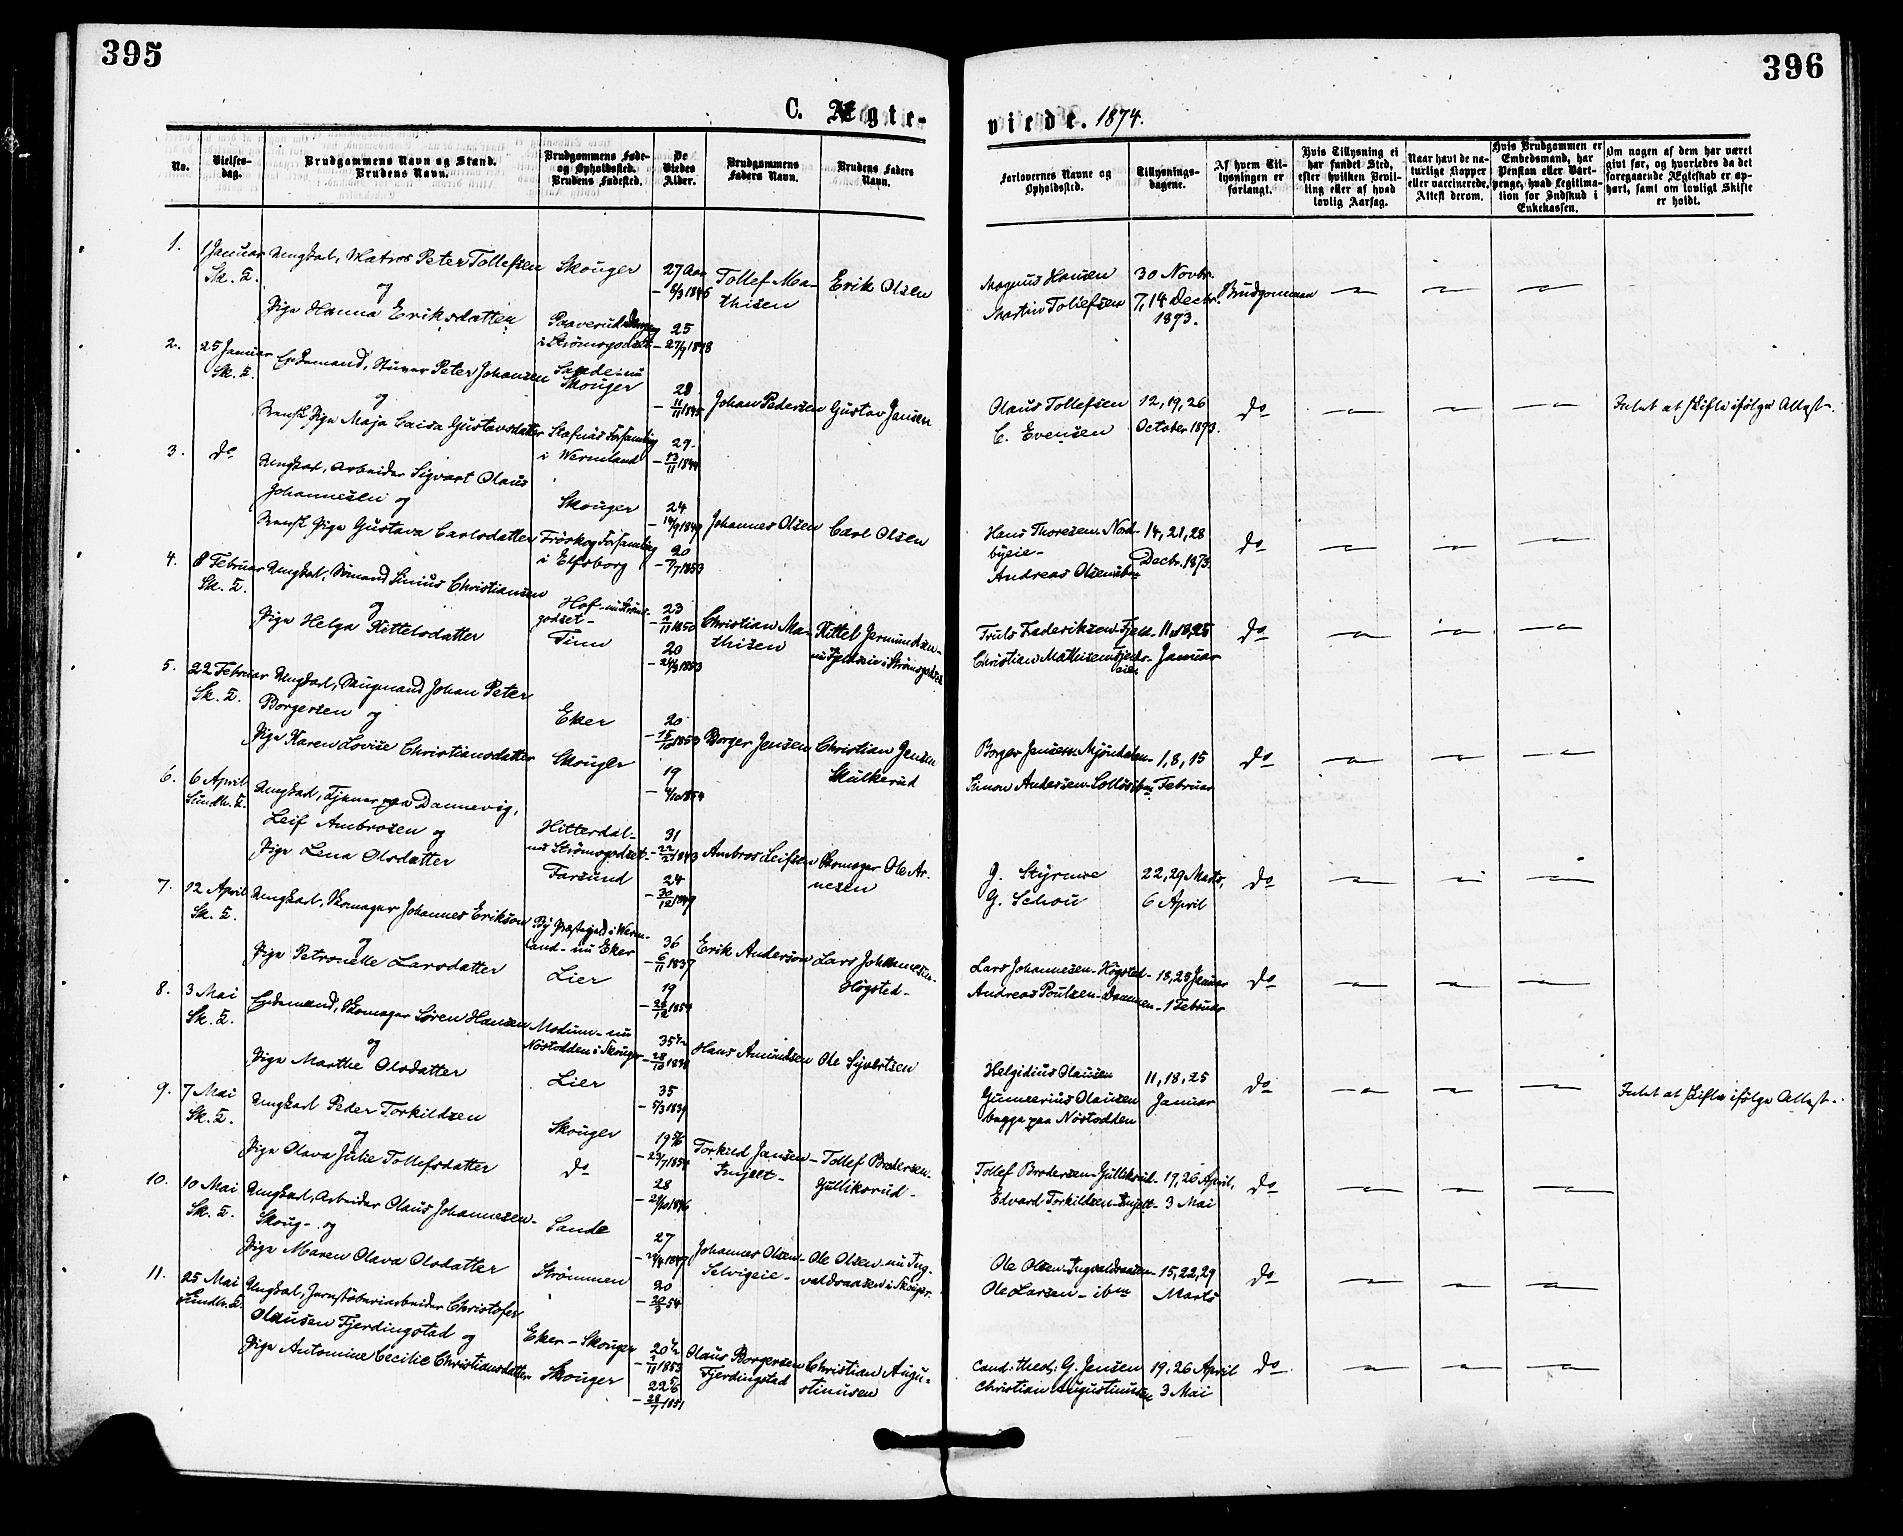 395
396
C. Ægte-
viede. 1874.
No.
Vielses-
dag.
Brudgommens Navn og Stand.
Brudens Navn.
Brudgommens Føde-
og Opholdssted.
Brudens Fødested.
De
Viedes
Alder.
Brudgommens
Faders Navn.
Brudens Faders
Navn.
Forlovernes Navne og
Opholdssted.
Tillysnings-
dagene.
Af hvem Til-
lysningen er
forlangt.
Hvis Tillysning ei
har fundet Sted,
efter hvilken Bevil-
ling eller af hvad
lovlig Aarsag.
Naar havt de na-
turlige Kopper
eller vaccinerede.
Attest derom.
Hvis Brudgommen er
Embedsmand, har
Pension eller Vart-
penge, hvad Legitima-
tion for Indskud i
Enkekassen.
Om nogen af dem har været
givt før, og hvorledes da det
foregaaende Ægteskab er op-
hørt, samt om lovligt Skifte
er holdt.
1.
1 Januar
Sk. K.
Ungkarl, Matros Peter Tollefsen
og
Pige Hanna Eriksdatter
Skouger
i Strømsgodset
27 Aar
25
Tollef Ma-
thisen
Erik Olsen
Magnus Hansen
Martin Tollefsen
30 Novbr.
7, 14 Decbr.
1873.
Brudgommen
2.
25 Januar
Sk. K.
Enkemand, Peter Johansen
og
Svensk Pige Maja Caisa Gustavsdatter
Sande - nu
Skouger
Stafnäs Forsamling
i Wermland
28
29
Johan Pedersen
Gustav Jansen
Olaus Tollefsen
C. Evensen
12, 19, 26
October 1873.
do
Intet at skifte ifølge Attest.
3.
do
Ungkarl, Arbeider Sigvart Olaus
Johannesen og
Svensk Pige Gustava Carlsdatter
Skouger
Forsamling
i Elfsborg
24
20
Johannes Olsen
Carl Olsen
Hans Thoresen Nord-
byeie -
Andreas Olsen
14, 21, 28
Decbr. 1873
do
4.
8 Februar
Sk. K.
Ungkarl, Sømand Sinius Christiansen
og
Pige Helga Kittelsdatter
Hof - nu Strøms-
godset -
Tinn
23
20
Christian Ma-
thisen
Kittel Jermundsen -
i Strømsgodset
Truls Frederiksen
Christian Mathisen
11, 18, 25
Januar
do
5.
22 Februar
Sk. K.
Ungkarl, Johan Peter
Borgersen og
Pige Karen Lovise Christiansdatter
Eker
Skouger
20
19
Borger Jensen
Christian Jensen
Skulkerud
Borger Jensen Mjöndalen
Simon Andersen
1, 8, 15
Februar
do
6.
6 April
Sundh. K.
Ungkarl, Tjener paa Dannevig,
Leif Ambrosen og
Pige Lena Olsdatter
Hitterdal -
nu Strømsgodset
Farsund
31
24
Ambros Leifsen
Skomager Ole Ar-
nesen
J. Styrmoe
G. Schou
22, 29 Marts,
6 April
do
7.
12 April
Sk. K.
Ungkarl, Skomager Johannes Erikson
og
Pige Petronelle Larsdatter
By Præstegjeld i Werm-
land - nu Eker
Lier
36
19
Erik Anderson
Lars Johannesen -
Högsted -
Lars Johannesen - Högsted -
Andreas Poulsen - Dammen -
18, 25 Januar
1 Februar
do
8.
3 Mai
Sk. K.
Enkemand, Skomager Søren Hansen
og
Pige Marthe Olsdatter
Modum - nu
Nöstodden i Skouger
Lier
35
Hans Amundsen
Ole Syvertsen
Helgidius Olausen
Gunnerius Olausen
begge paa Nöstodden
11, 18, 25
Januar
do
Intet at skifte ifølge Attest.
9.
7 Mai
Sk. K.
Ungkarl Peder Torkildsen
og
Pige Olava Julie Tollefsdatter
Skouger
do
28
Torkild Jansen -
Tollef Brodersen -
Gulliksrud -
Tollef Brodersen - Gulliksrud -
Edvard Torkildsen
19, 26 April,
3 Mai
do
10.
10 Mai
Sk. K.
Ungkarl, Arbeider Olaus Johannesen -
Skoug - og
Pige Maren Olava Olsdatter
Sande
Strömmen
27
20
Johannes Olsen -
Selvigeie -
Ole Olsen - nu Ing-
valdsaasen i Skouger
Ole Olsen - Ingvaldsaasen -
Ole Larsen - ibm
15, 22, 29
Marts
do
11.
25 Mai
Sundh. K.
Ungkarl, Jernstöberiarbeider Christofer
Olausen Fjerdingstad og
Pige Antomine Cecilie Christiansdatter
Eker - Skouger
Skouger
Olaus Borgersen
Fjerdingstad
Christian Augu-
stinusen
Cand. theol. G. Jensen
Christian Augustinusen
19, 26 April
3 Mai
do